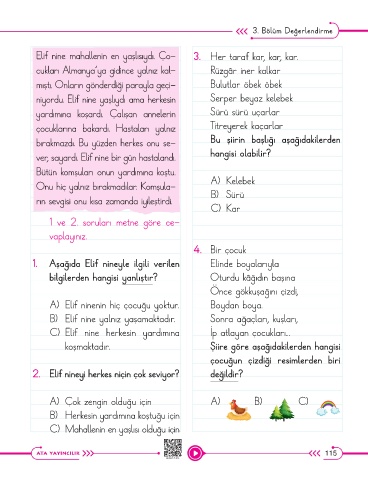 3. Bölüm Değerlendirme
Elif nine mahallenin en yaşlısıydı. Ço-
cukları Almanya'ya gidince yalnız kal-
mıştı. Onların gönderdiği parayla geçi-
niyordu. Elif nine yaşlıydı ama herkesin
yardımına koşardı. Çalışan annelerin
çocuklarına bakardı. Hastaları yalnız
bırakmazdı. Bu yüzden herkes onu se-
ver, sayardı. Elif nine bir gün hastalandı.
Bütün komşuları onun yardımına koştu.
Onu hiç yalnız bırakmadılar. Komşula-
rın sevgisi onu kısa zamanda iyileştirdi.
1 ve 2. soruları metne göre ce-
vaplayınız.
1. Aşağıda Elif nineyle ilgili verilen
bilgilerden hangisi yanlıştır?
A) Elif ninenin hiç çocuğu yoktur.
B) Elif nine yalnız yaşamaktadır.
C) Elif nine herkesin yardımına
koşmaktadır.
2. Elif nineyi herkes niçin çok seviyor?
A) Çok zengin olduğu için
B) Herkesin yardımına koştuğu için
C) Mahallenin en yaşlısı olduğu için
3. Her taraf kar, kar, kar.
Rüzgâr iner kalkar
Bulutlar öbek öbek
Serper beyaz kelebek
Sürü sürü uçarlar
Titreyerek kaçarlar
Bu şiirin başlığı aşağıdakilerden
hangisi olabilir?
A) Kelebek
B) Sürü
C) Kar
4. Bir çocuk
Elinde boyalarıyla
Oturdu kâğıdın başına
Önce gökkuşağını çizdi,
Boydan boya.
Sonra ağaçları, kuşları,
İp atlayan çocukları...
Şiire göre aşağıdakilerden hangisi
çocuğun çizdiği resimlerden biri
değildir?
A) B) C)
ATA YAYINCILIK
115